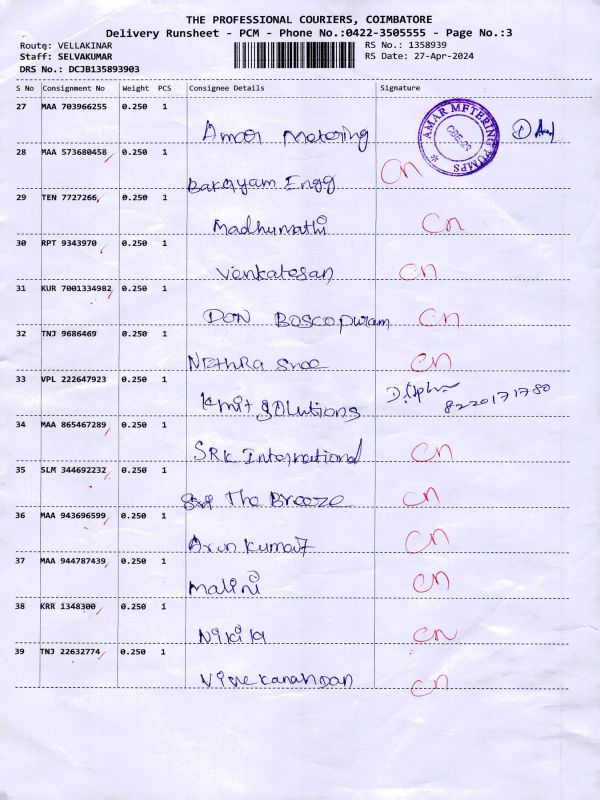 THE PROFESSIONAL COURIERS, COIMBATORE
Delivery Runsheet - PCM - Phone No.:0422-3505555 - Page No.:3
Route: VELLAKINAR RS No.: 1358939
Staff: SELVAKUMAR RS Date: 27-Apr-2024
DRS No.: DCJB135893903
S No Consignment No Weight PCS Consignee Details Signature
27 MAA 703966255 0.250 1
Amar Metering AMAR METERING PUMPS CBE-29
28 MAA 573680458 0.250 1
Bakqyam Engg cn
29 TEN 7727266 0.250 1
Madhumathi cn
30 RPT 9343970 0.250 1
Venkatesan cn
31 KUR 7001334982 0.250 1
DON BOSCO puram cn
32 TNJ 9686469 0.250 1
NETHRA sree cn
33 VPL 222647923 0.250 1
kmit solutions 8220171780
34 MAA 865467289 0.250 1
SRK International cn
35 SLM 344692232 0.250 1
The Breeze cn
36 MAA 943696599 0.250 1
Arun kumar cn
37 MAA 944787439 0.250 1
malini cn
38 KRR 1348300 0.250 1
Nikiki cn
39 TNJ 22632774 0.250 1
Vivekanandan cn